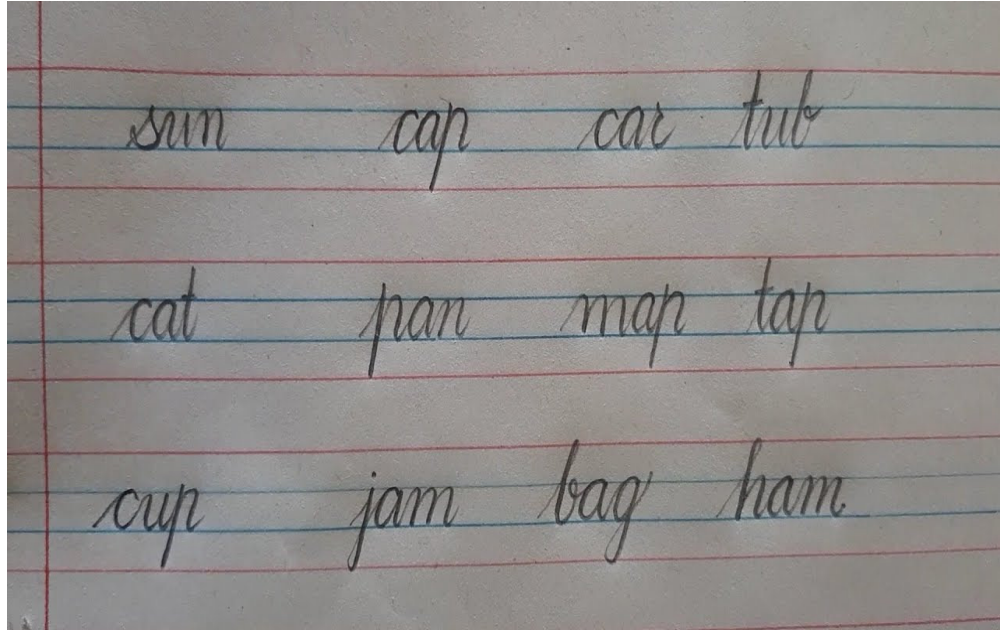 sun cap car tub
cat pan map tap
cup jam bag ham